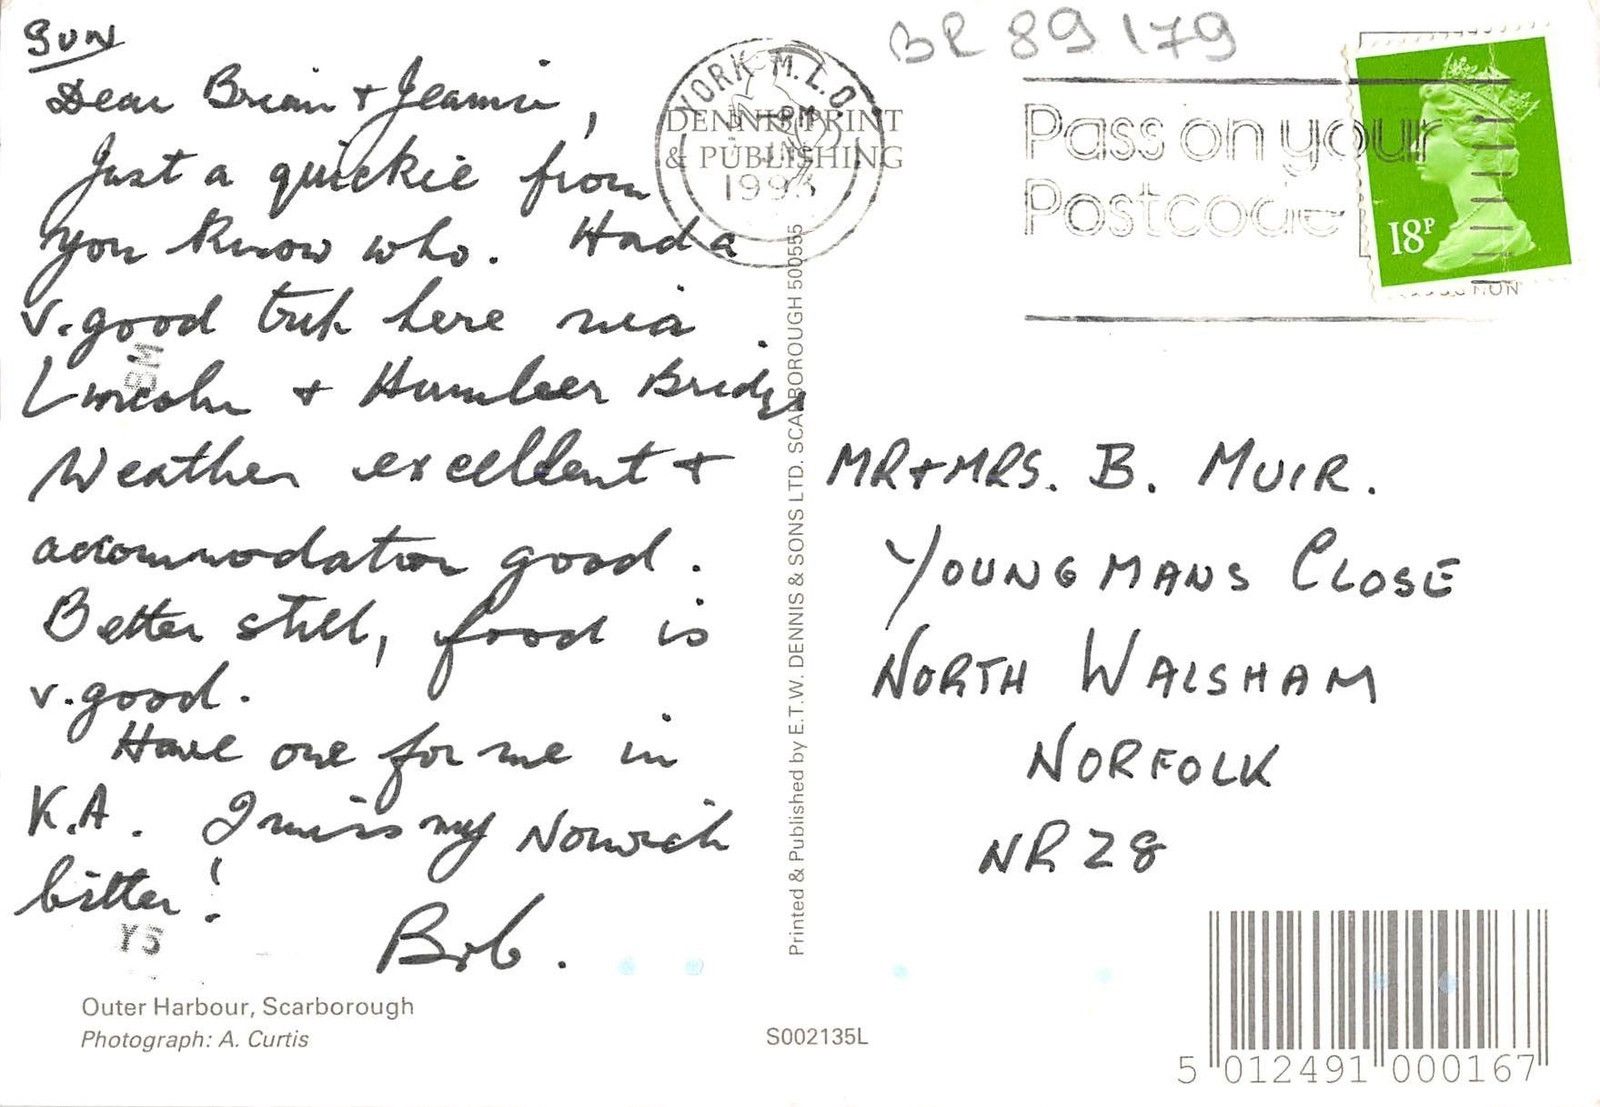 SUN
Dear Brian + Jeannie,
Just a quickie from
you know who. Had a
v. good trip here via
Lincoln + Humber Bridge
Weather excellent +
accommodation good.
Better still, food is
v. good.
Have one for me in
K.A. I miss my Norwich
bitter!
Bob.
Y5
Outer Harbour, Scarborough
Photograph: A. Curtis
BR 89 179
YORK M.L.O
PM
1993
DENNIS PRINT
& PUBLISHING
Pass on your
Postcode
18P
Printed & Published by E.T.W. DENNIS & SONS LTD. SCARBOROUGH 500555
MR + MRS. B. MUIR.
YOUNGMANS CLOSE
NORTH WALSHAM
NORFOLK
NR28
S002135L
5 012491 000167